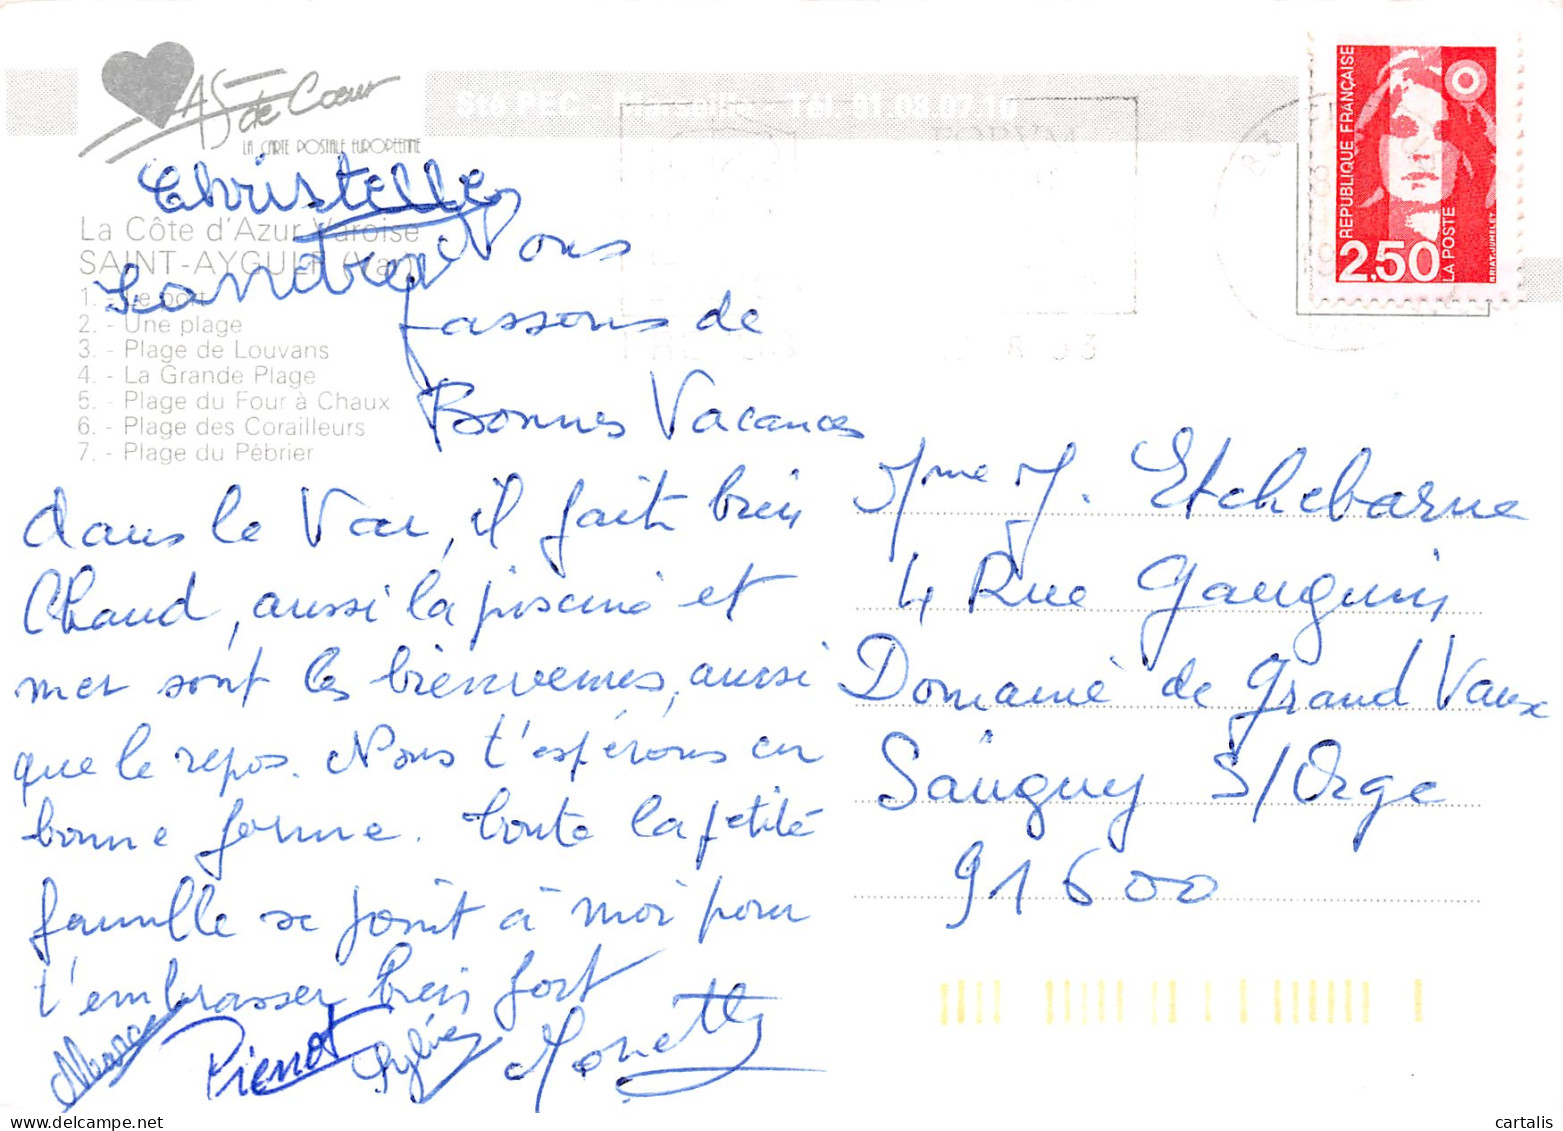 AS de Coeur
LA CARTE POSTALE EUROPEENNE
Sté PEC - Marseille - Tél. 91.08.07.16
La Côte d'Azur Varoise
SAINT-AYGULF (Var)
1. - Le port
2. - Une plage
3. - Plage de Louvans
4. - La Grande Plage
5. - Plage du Four à Chaux
6. - Plage des Corailleurs
7. - Plage du Pébrier
Christelle
Sandra
Nous
passons de
Bonnes Vacances
dans le Var, il fait bien
Chaud, aussi la piscine et
mer sont les bienvenues, aussi
que le repos. Nous t'espérons en
bonne forme. toute la petite
famille se joint à moi pour
t'embrasser bien fort
Pierrot
Sylvie
REPUBLIQUE FRANÇAISE
2,50
LA POSTE
BRIAT-JUMELET
Mme J. Etchebarne
4 Rue Gauguin
Domaine de Grand Vaux
Sauguy S/Orge
91600
cartalis